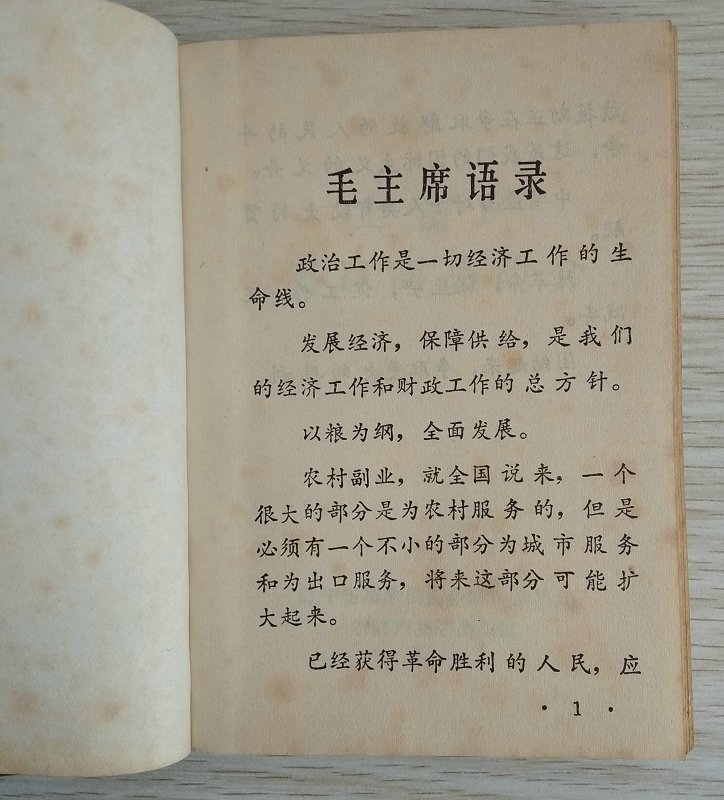 毛主席语录
政治工作是一切经济工作的生
命线。
发展经济，保障供给，是我们
的经济工作和财政工作的总方针。
以粮为纲，全面发展。
农村副业，就全国说来，一个
很大的部分是为农村服务的，但是
必须有一个不小的部分为城市服务
和为出口服务，将来这部分可能扩
大起来。
已经获得革命胜利的人民，应
· 1 ·